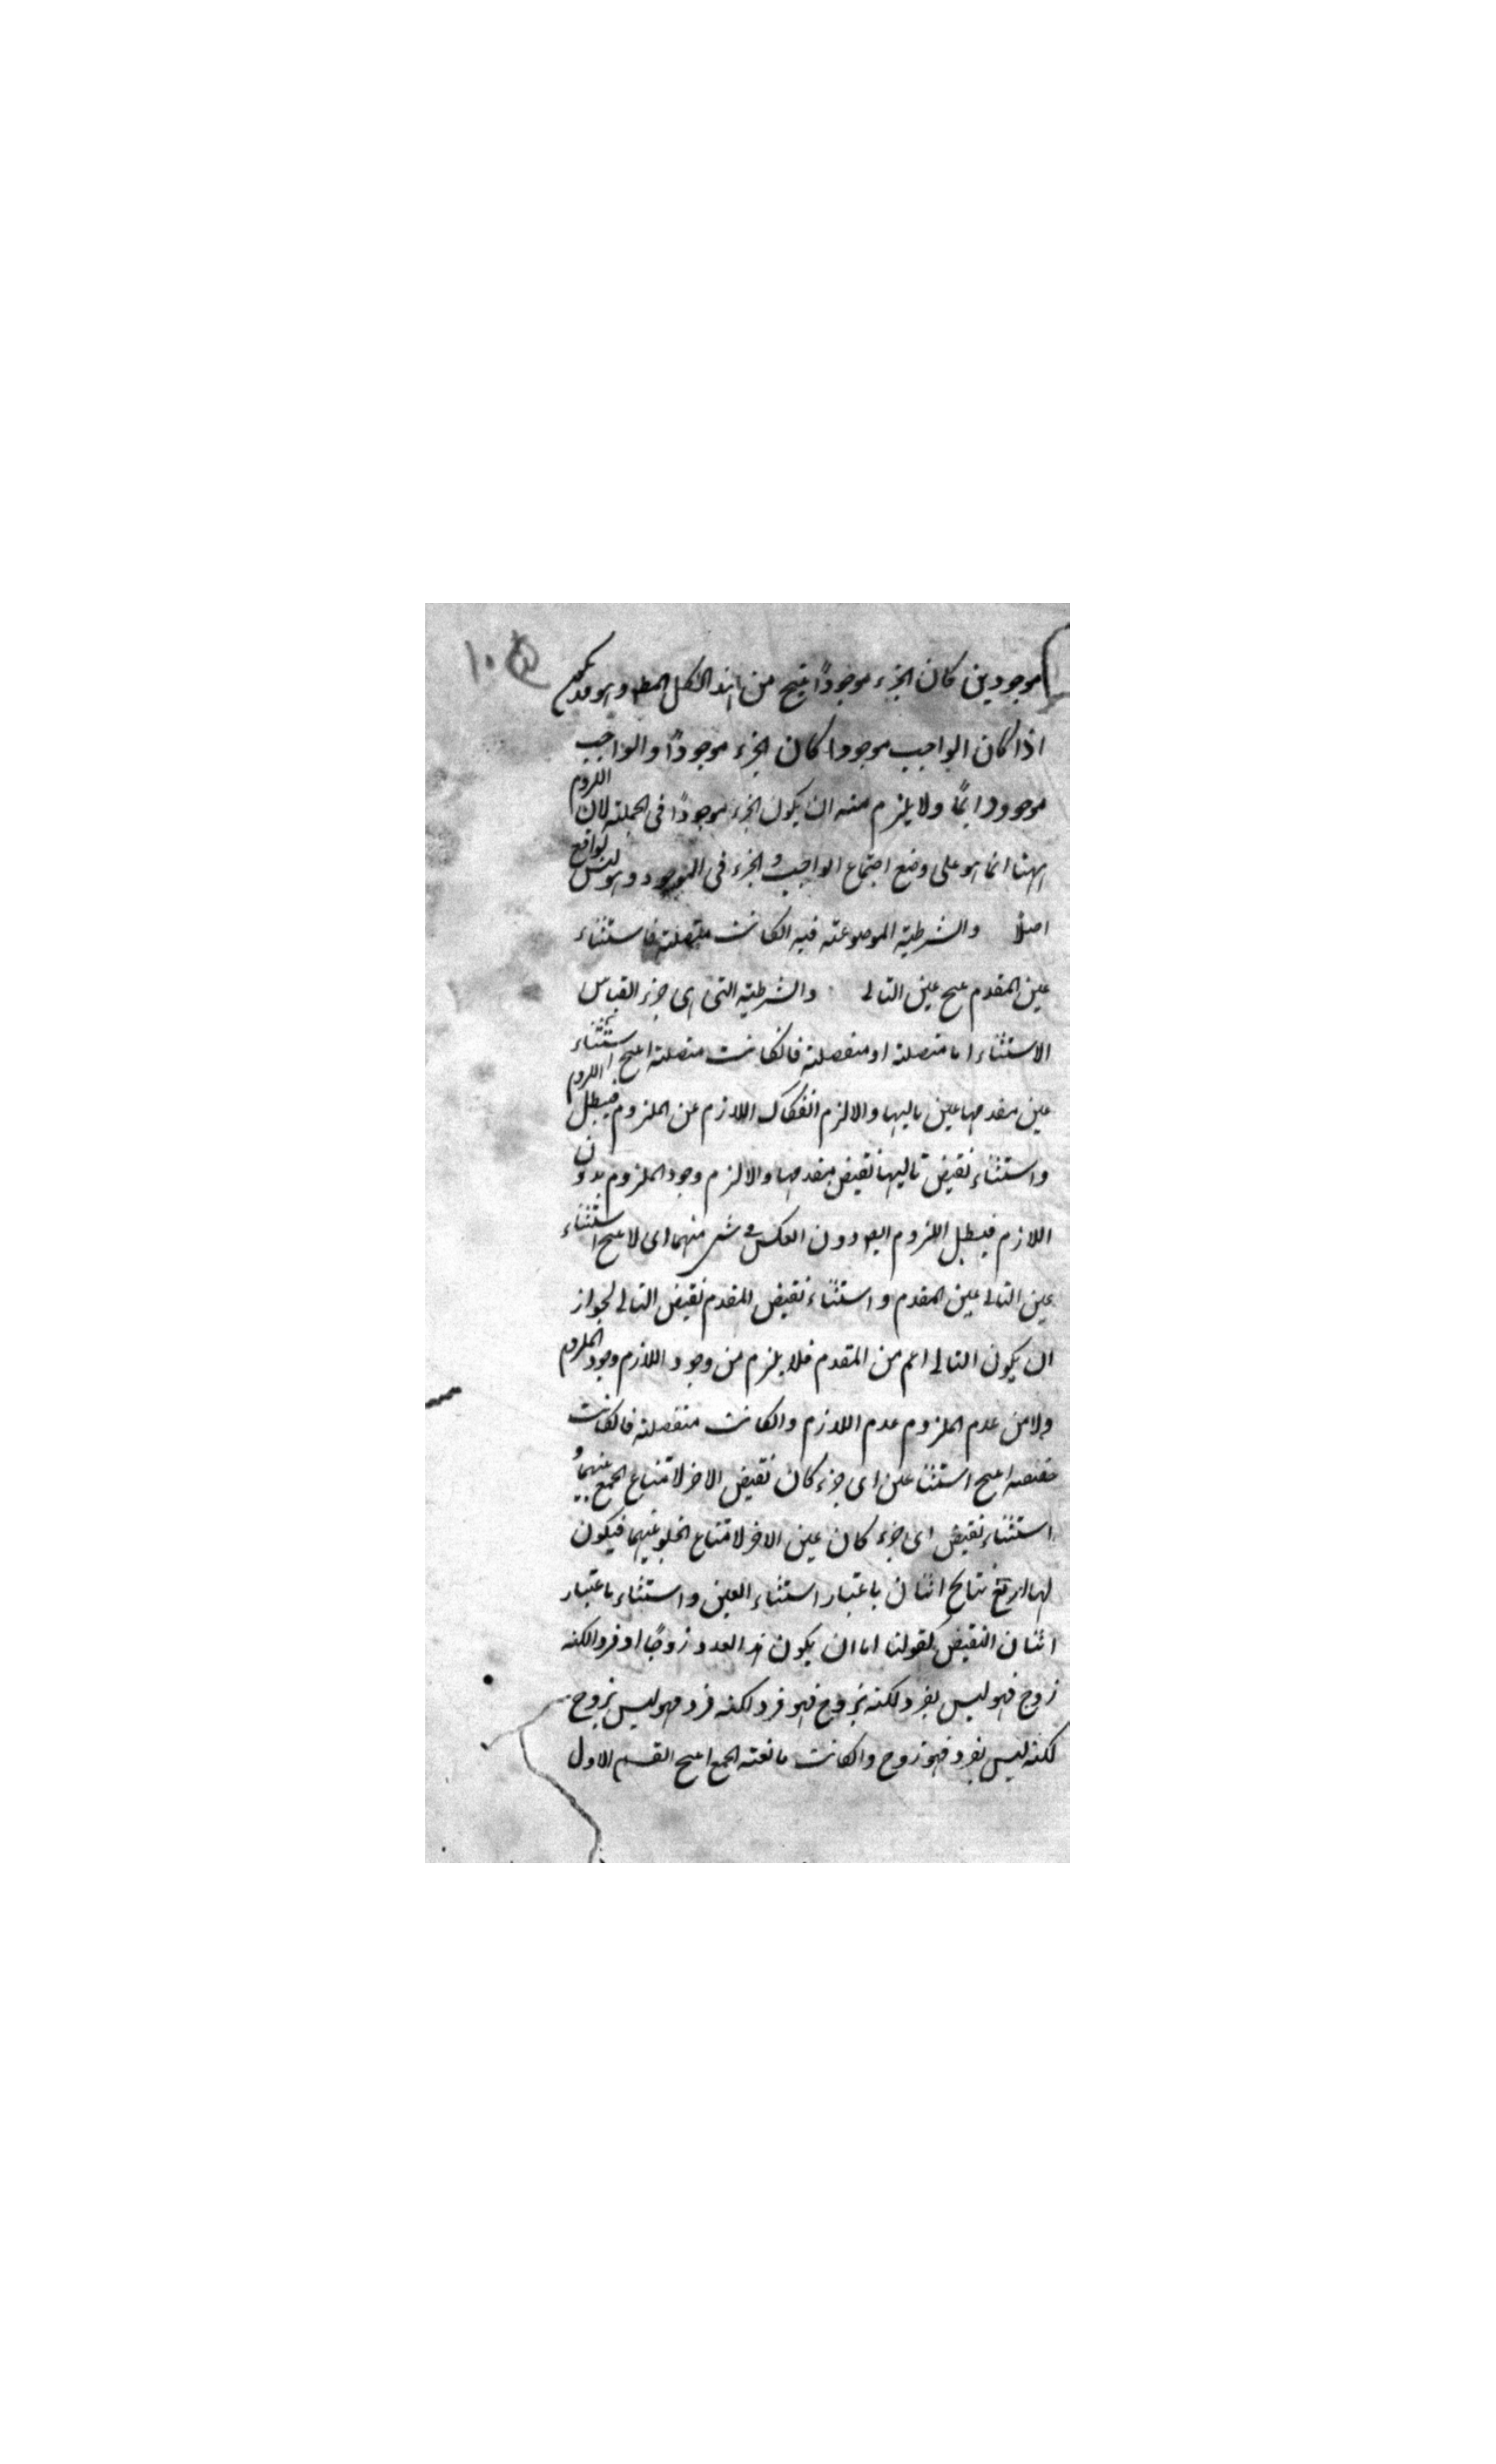 ١٠٥
موجودين كان الجزء موجودًا ينتج من هذا الشكل المط وهو قد يكون
اذا كان الواجب موجودا كان الجزء موجودًا والواجب
موجود دايمًا ولا يلزم منه ان يكون الجزء موجودًا فى الجملة لان اللزوم
ههنا انما هو على وضع اجتماع الواجب و الجزء فى الوجود وهو ليس بواقع
اصلا والشرطية الموضوعة فيه ان كانت متصلة فاستثناء
عين المقدم ينتج عين التالى والشرطية التى هى جزء القياس
الاستثنائى اما متصلة او منفصلة فان كانت متصلة انتج استثناء
عين مقدمها عين تاليها والا لزم انفكاك اللازم عن الملزوم فيبطل اللزوم
واستثناء نقيض تاليها نقيض مقدمها والا لزم وجود الملزوم بدون
اللازم فيبطل اللزوم ايضا دون العكس فى شىء منهما اى لا ينتج استثناء
عين التالى عين المقدم و استثناء نقيض المقدم نقيض التالى لجواز
ان يكون التالى اعم من المقدم فلا يلزم من وجود اللازم وجود الملزوم
ولا من عدم الملزوم عدم اللازم وان كانت منفصلة فان كانت
حقيقية انتج استثنا عين اى جزء كان نقيض الاخر لامتناع الجمع بينهما و
استثناء نقيض اى جزء كان عين الاخر لامتناع الخلو عنهما فيكون
لها اربع نتايج اثنان باعتبار استثناء العين و استثناء باعتبار
اثنان النقيض كقولنا اما ان يكون هذا العدد زوجًا او فردا لكنه
زوج فهو ليس بفرد لكنه بزوج فهو فرد لكنه فرد فهو ليس بزوج
لكنه ليس بفرد فهو زوج وان كانت مانعة الجمع انتج القسم الاول